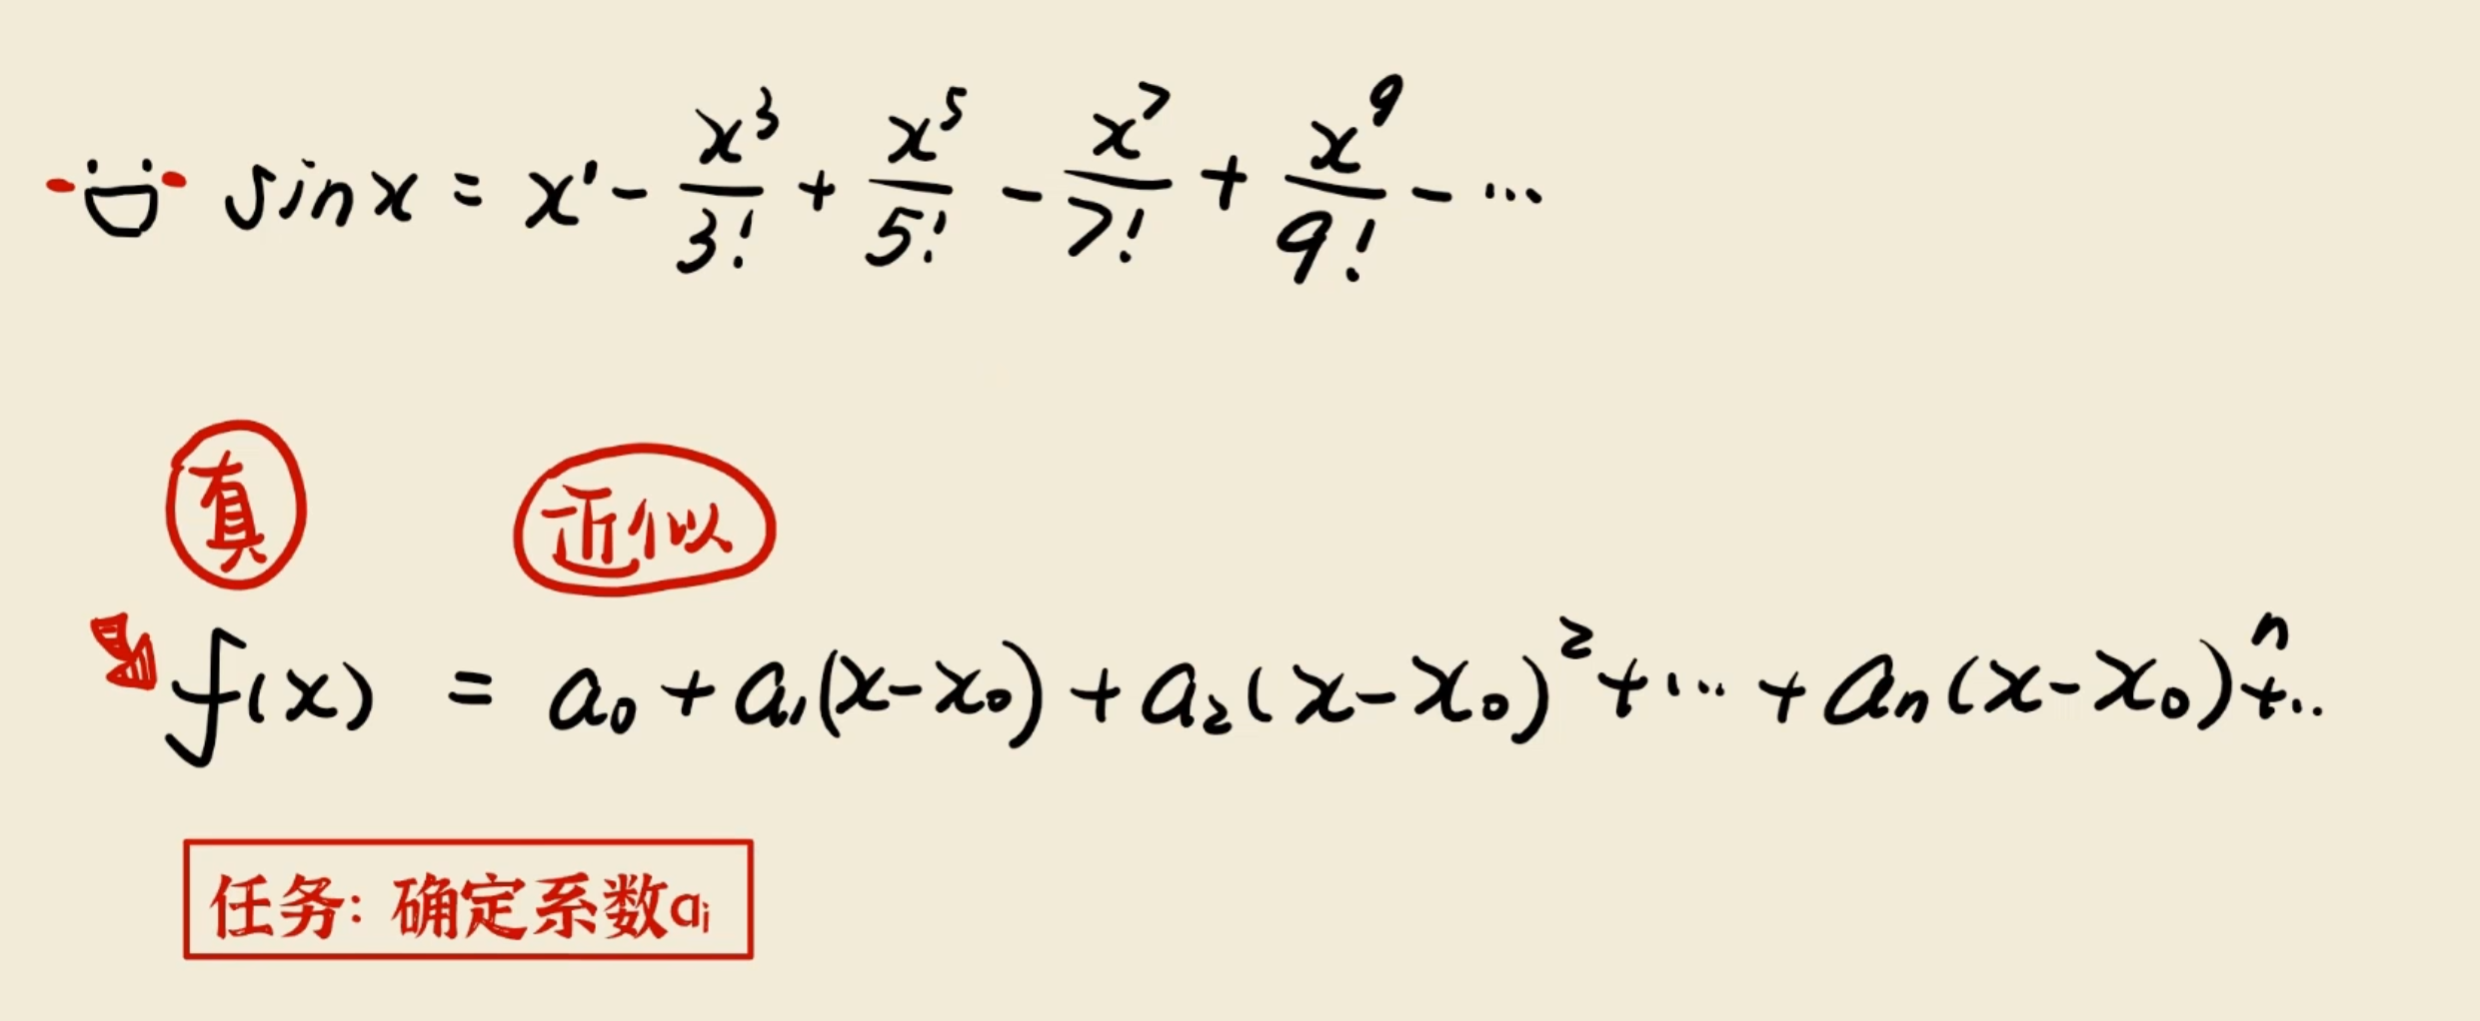 sin x = x¹ - x³/3! + x⁵/5! - x⁷/7! + x⁹/9! - ...
真 近似
f(x) = a₀ + a₁(x-x₀) + a₂(x-x₀)² + ... + aₙ(x-x₀)ⁿ + ...
任务: 确定系数aᵢ